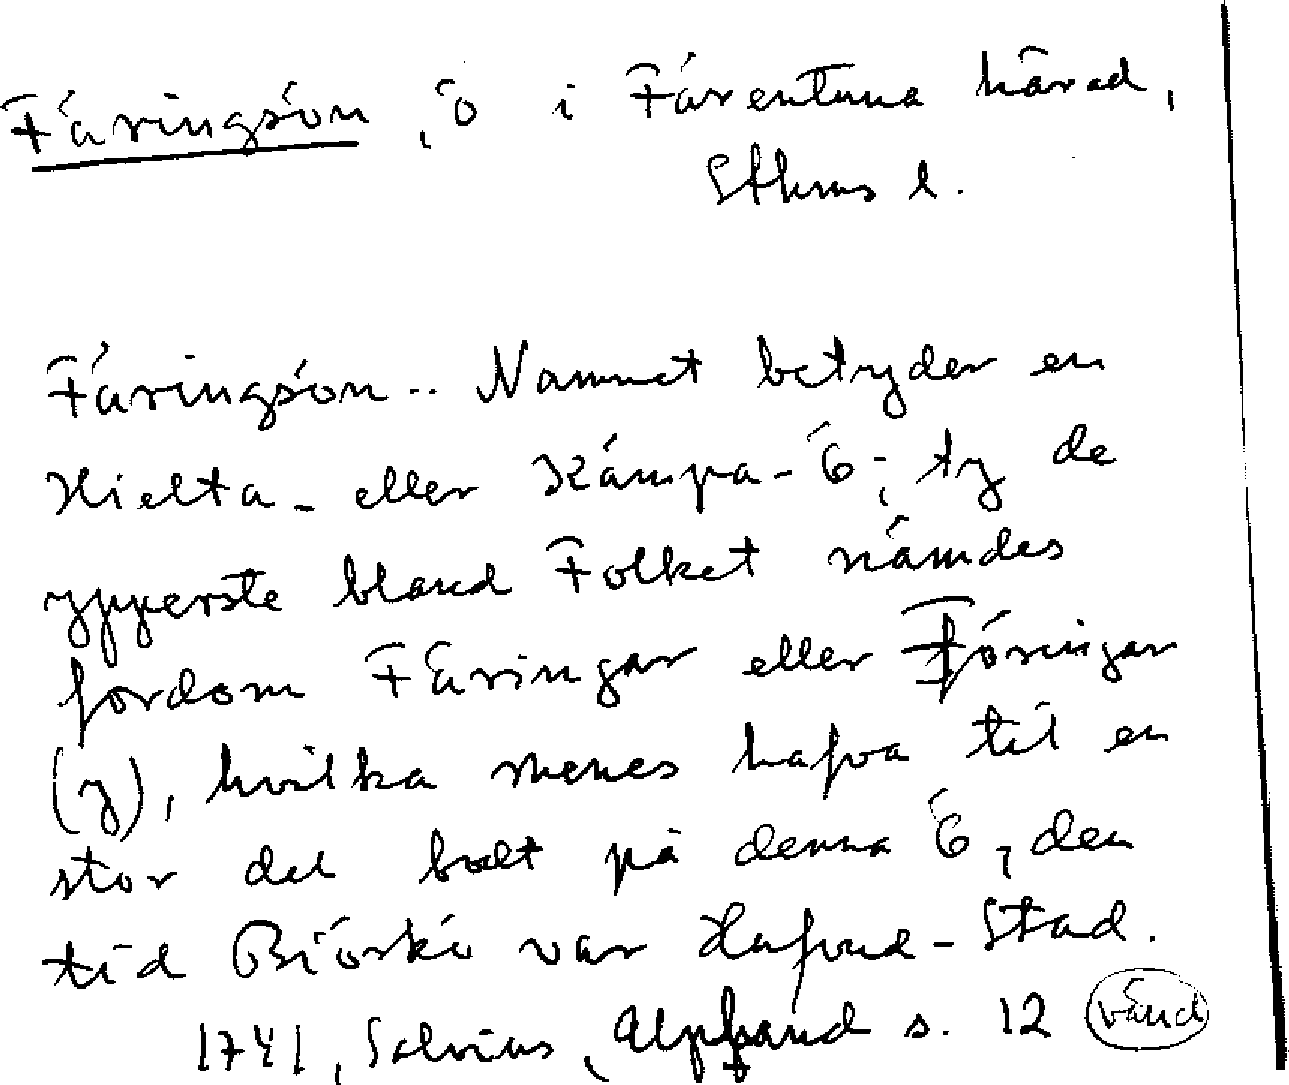 Färingsön, ö i Färentuna härad,
Sthms l.
Färingsön.. Namnet betyder en
Hielta- eller Kämpa-Ö; ty de
ypperste bland Folket nämdes
fordom Färingar eller Föringar
(y), hvilka menes hafva til en
stor del bott på denna Ö, den
tid Biörkö var Hufvud-Stad.
1741, Salvius, Uppland s. 12 vänd